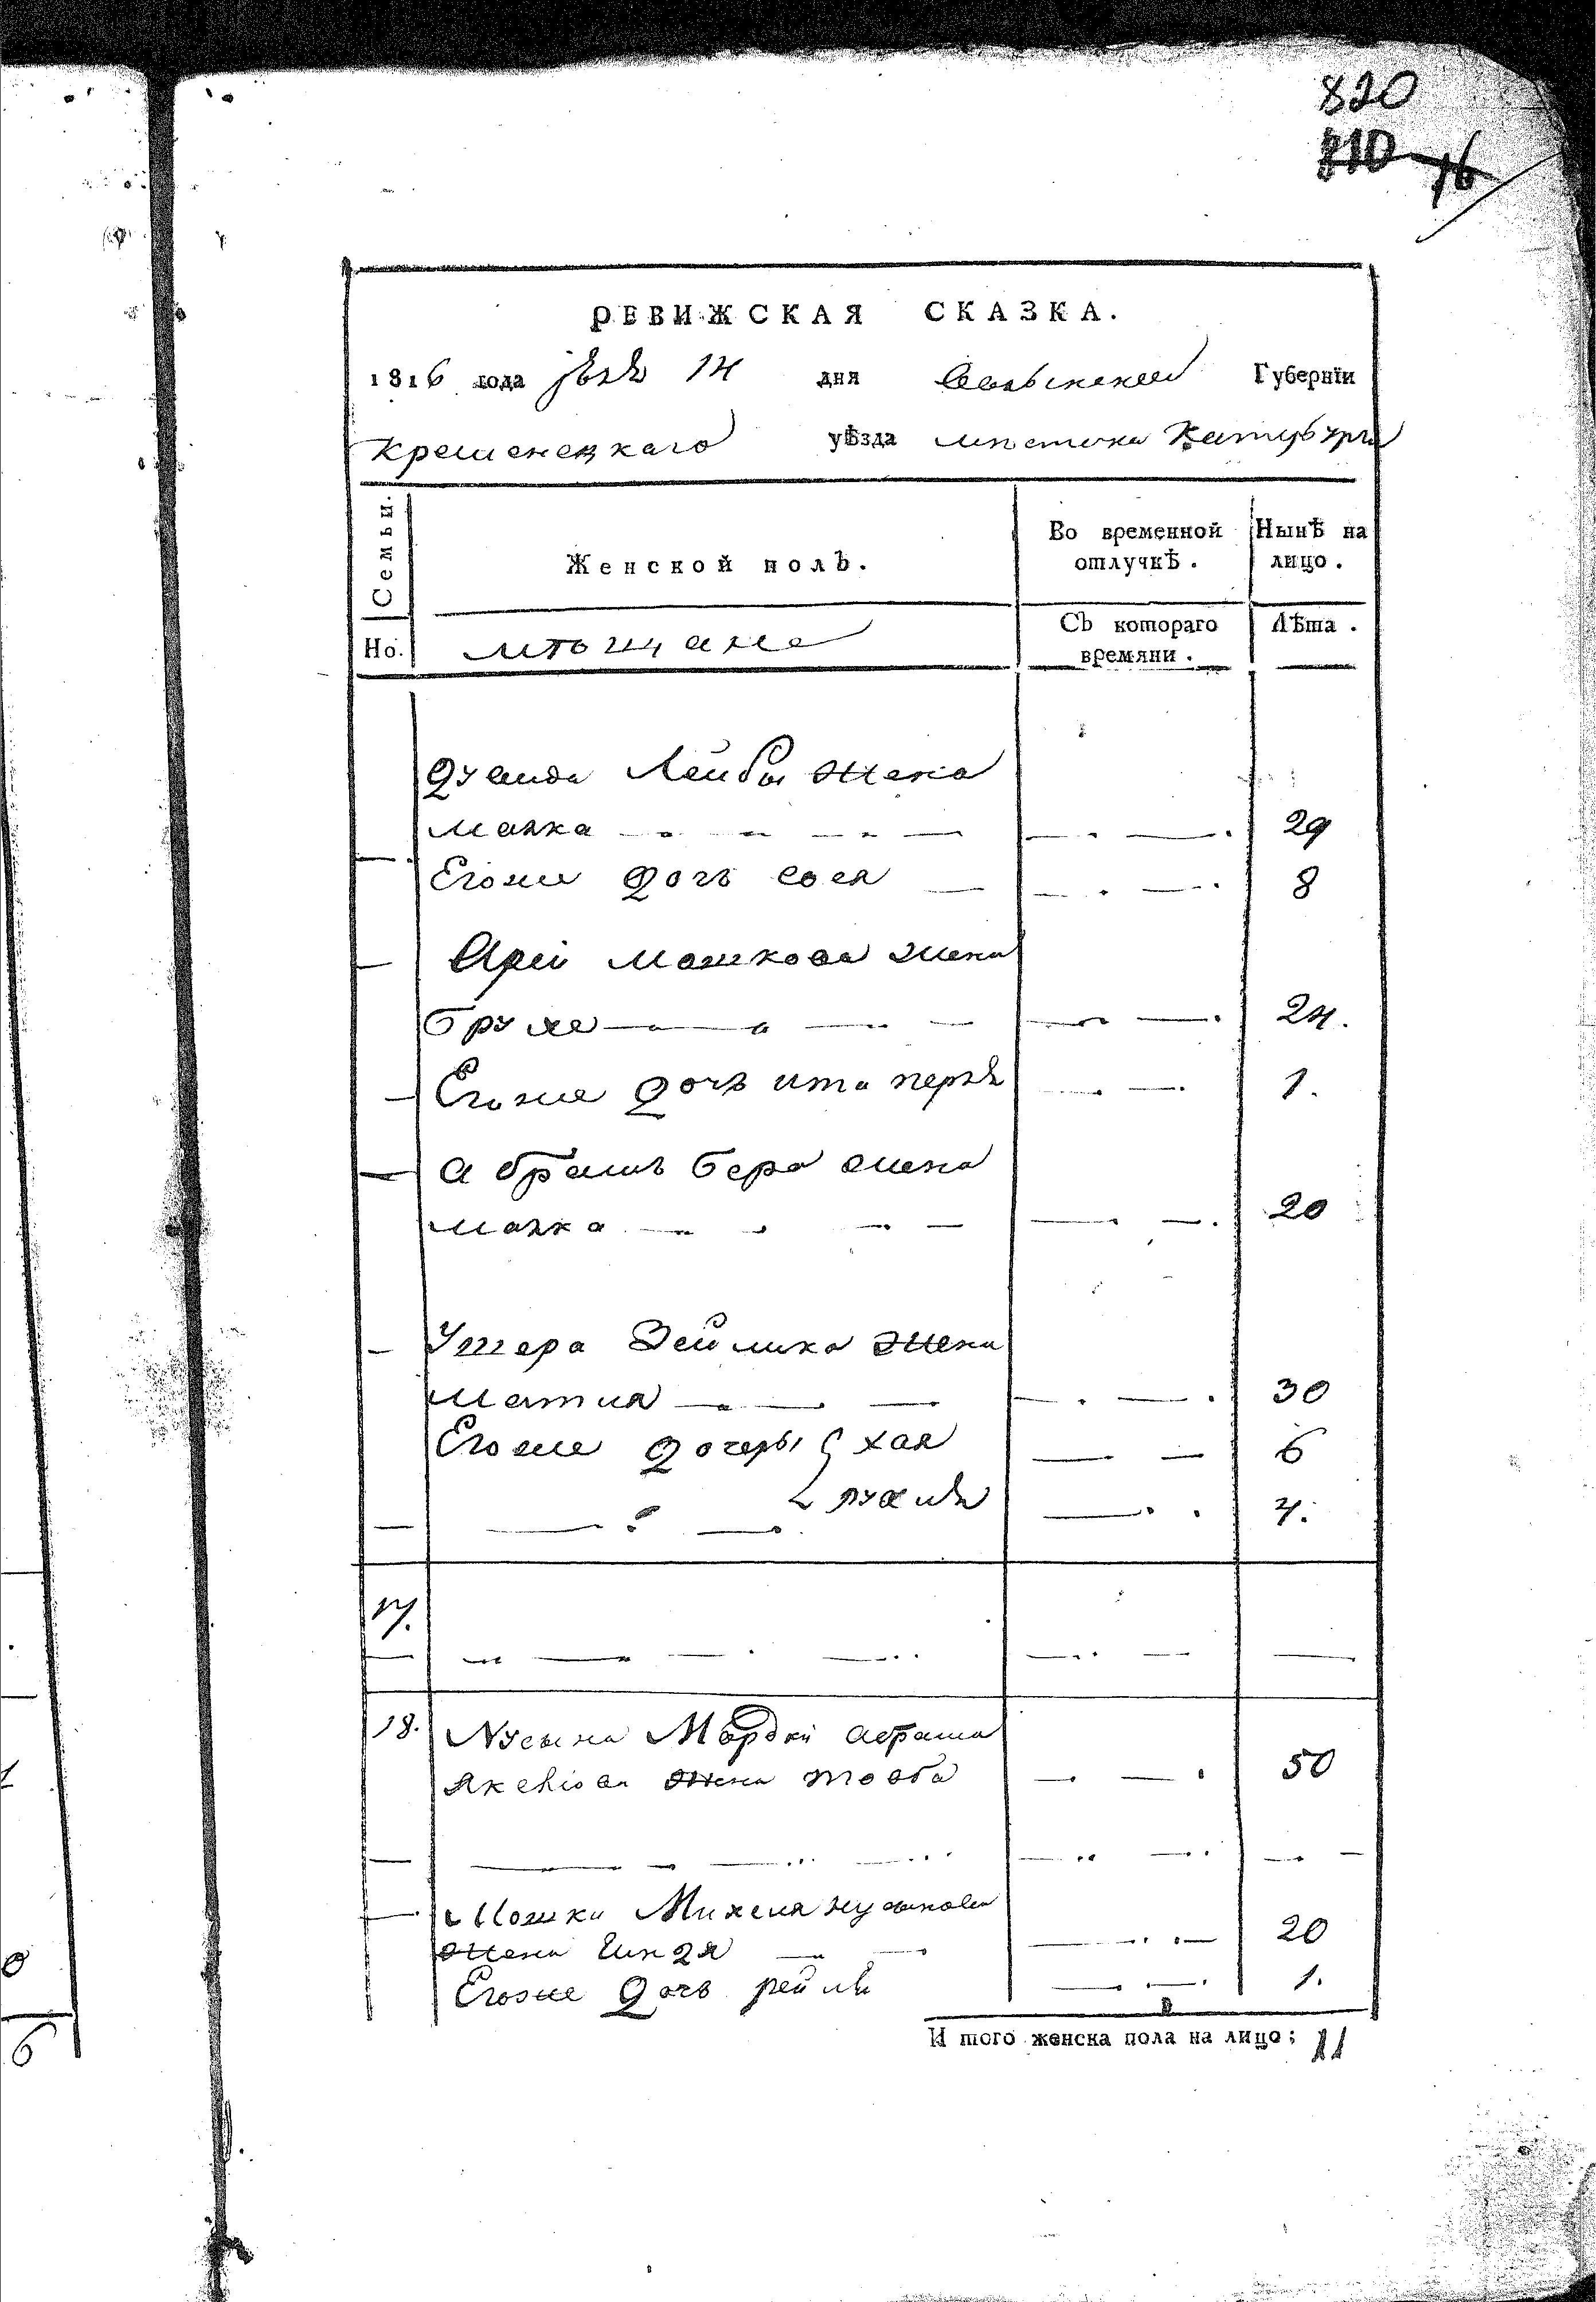 820
210 16
РЕВИЖСКАЯ СКАЗКА.
1816 года 14 дня Волынской Губернїи
Кременецкаго уѣзда местечка Катербурга
Семьи. Женской полъ. Во временной отлучкѣ. Нынѣ на лицо.
Но. мѣщане Съ котораго времяни. Лѣта.
Лейбы жена
малка 29
Егоже дочь сося 8
Арїи мошкова жена
бруха 24.
Егоже дочь ита перля 1.
абрамъ бера жена
малка 20
Ушера Зейлика жена
матля 30
Егоже дочеры хая 6
рухля 4.
17.
18. Нусына Мордки абрама
жена товба 50
Мошки Михеля нусынова
жена гиндя 20
Егоже дочь рейля 1.
И того женска пола на лицо; 11
0
6